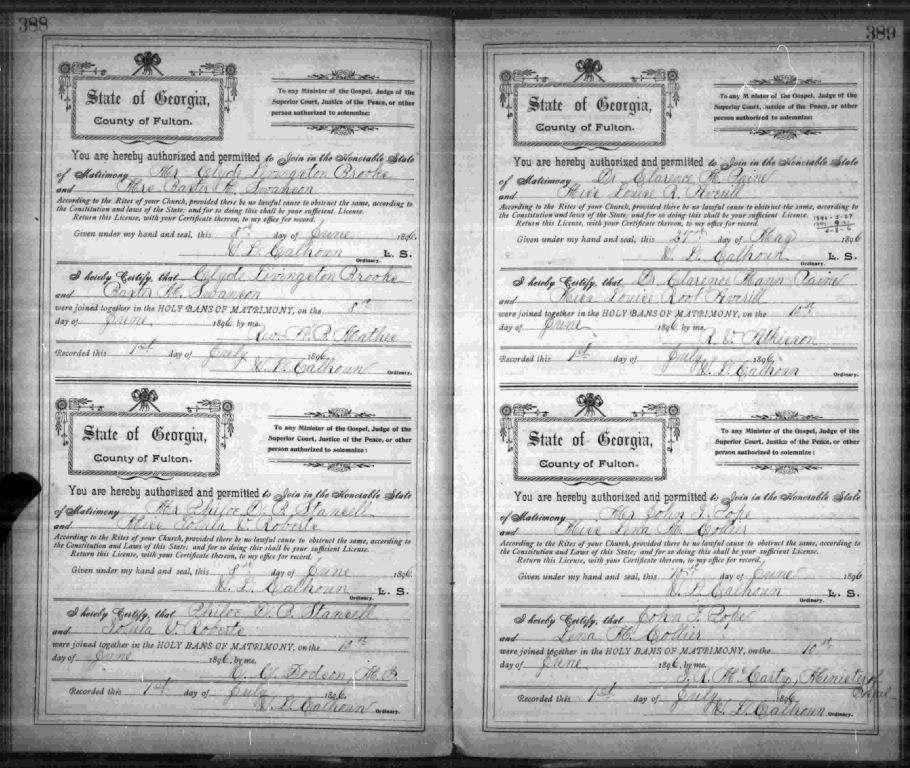 388
State of Georgia,
County of Fulton.
To any Minister of the Gospel, Judge of the
Superior Court, Justice of the Peace, or other
person authorized to solemnize:
You are hereby authorized and permitted to Join in the Honorable State
of Matrimony Mr Clyde Livingston Brooke
and Mrs Baxter M. Swanson
According to the Rites of your Church, provided there be no lawful cause to obstruct the same, according to
the Constitution and laws of the State; and for so doing this shall be your sufficient License.
Return this License, with your Certificate thereon, to my office for record.
Given under my hand and seal, this 8th day of June 1896.
W. L. Calhoun L. S.
Ordinary.
I hereby Certify, that Clyde Livingston Brooke
and Baxter M. Swanson
were joined together in the HOLY BANS OF MATRIMONY, on the 8th
day of June 1896 by me.
Rev.
Recorded this 1st day of July 1896
W. L. Calhoun
Ordinary.
State of Georgia,
County of Fulton.
To any Minister of the Gospel, Judge of the
Superior Court, Justice of the Peace, or other
person authorized to solemnize:
You are hereby authorized and permitted to Join in the Honorable State
of Matrimony Mr Philoe D. B. Stancell
and Miss Lolula V. Roberts
According to the Rites of your Church, provided there be no lawful cause to obstruct the same, according to
the Constitution and Laws of this State; and for so doing this shall be your sufficient License.
Return this License, with your Certificate thereon, to my office for record.
Given under my hand and seal, this 8th day of June 1896
W. L. Calhoun L. S.
Ordinary.
I hereby Certify, that Philoe D. B. Stancell
and Lolula V. Roberts
were joined together in the HOLY BANS OF MATRIMONY, on the
day of June 1896, by me.
Dodson,
Recorded this 1st day of July 1896
W. L. Calhoun
Ordinary.
389
State of Georgia,
County of Fulton.
To any Minister of the Gospel, Judge of the
Superior Court, Justice of the Peace, or other
person authorized to solemnize:
You are hereby authorized and permitted to Join in the Honorable State
of Matrimony Dr Clarence M. Paine
and Miss Louise R. Averill
According to the Rites of your Church, provided there be no lawful cause to obstruct the same, according to
the Constitution and laws of the State; and for so doing this shall be your sufficient License.
Return this License, with your Certificate thereon, to my office for record.
Given under my hand and seal, this day of May 1896
W. L. Calhoun L. S.
Ordinary.
I hereby Certify, that Dr Clarence Mann Paine
and Miss Louise Root Averill
were joined together in the HOLY BANS OF MATRIMONY, on the 10th
day of June 1896 by me.
R. V. Atkisson
Recorded this 1st day of July 1896
W. L. Calhoun
Ordinary.
State of Georgia,
County of Fulton.
To any Minister of the Gospel, Judge of the
Superior Court, Justice of the Peace, or other
person authorized to solemnize:
You are hereby authorized and permitted to Join in the Honorable State
of Matrimony Mr John I. Pope
and Miss Lina M. Collier
According to the Rites of your Church, provided there be no lawful cause to obstruct the same, according to
the Constitution and Laws of this State; and for so doing this shall be your sufficient License.
Return this License, with your Certificate thereon, to my office for record.
Given under my hand and seal, this 10th day of June 1896
W. L. Calhoun L. S.
Ordinary.
I hereby Certify, that John I. Pope
and Lina M. Collier
were joined together in the HOLY BANS OF MATRIMONY, on the 10th
day of June 1896, by me.
McCarty, Minister of
Gospel
Recorded this 1st day of July 1896
W. L. Calhoun
Ordinary.